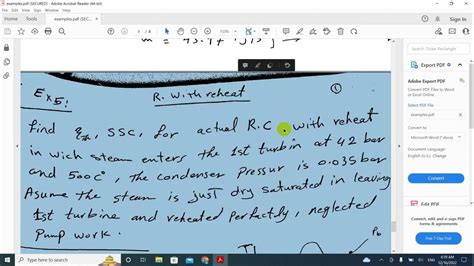 examples.pdf (SECURED) - Adobe Acrobat Reader (64-bit)
File Edit View Sign Window Help
Home Tools examples.pdf (SEC...
Ex5: R. with reheat
find SSC, for actual R.C. with reheat
in wich steam enters the 1st turbin at 42 bar
and 500C°, the condenser Pressur is 0.035 bar
Asume the steam is just dry saturated in leaving
1st turbine and reheated perfectly, neglected
Pump work.
Export PDF
Adobe Export PDF
Convert PDF Files to Word
or Excel Online
Select PDF File
examples.pdf
Convert to
Microsoft Word (*.docx)
Document Language:
English (U.S.) Change
Convert
Edit PDF
Convert, edit and e-sign PDF
forms & agreements
Free 7-Day Trial
Type here to search
4:39 AM
12/16/2022